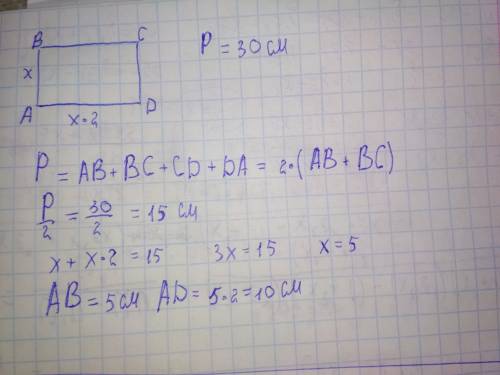 B C
P = 30 см
x
A D
x·2
P = AB + BC + CD + DA = 2·(AB + BC)
P/2 = 30/2 = 15 см
x + x·2 = 15 3x = 15 x = 5
AB = 5 см AD = 5·2 = 10 см